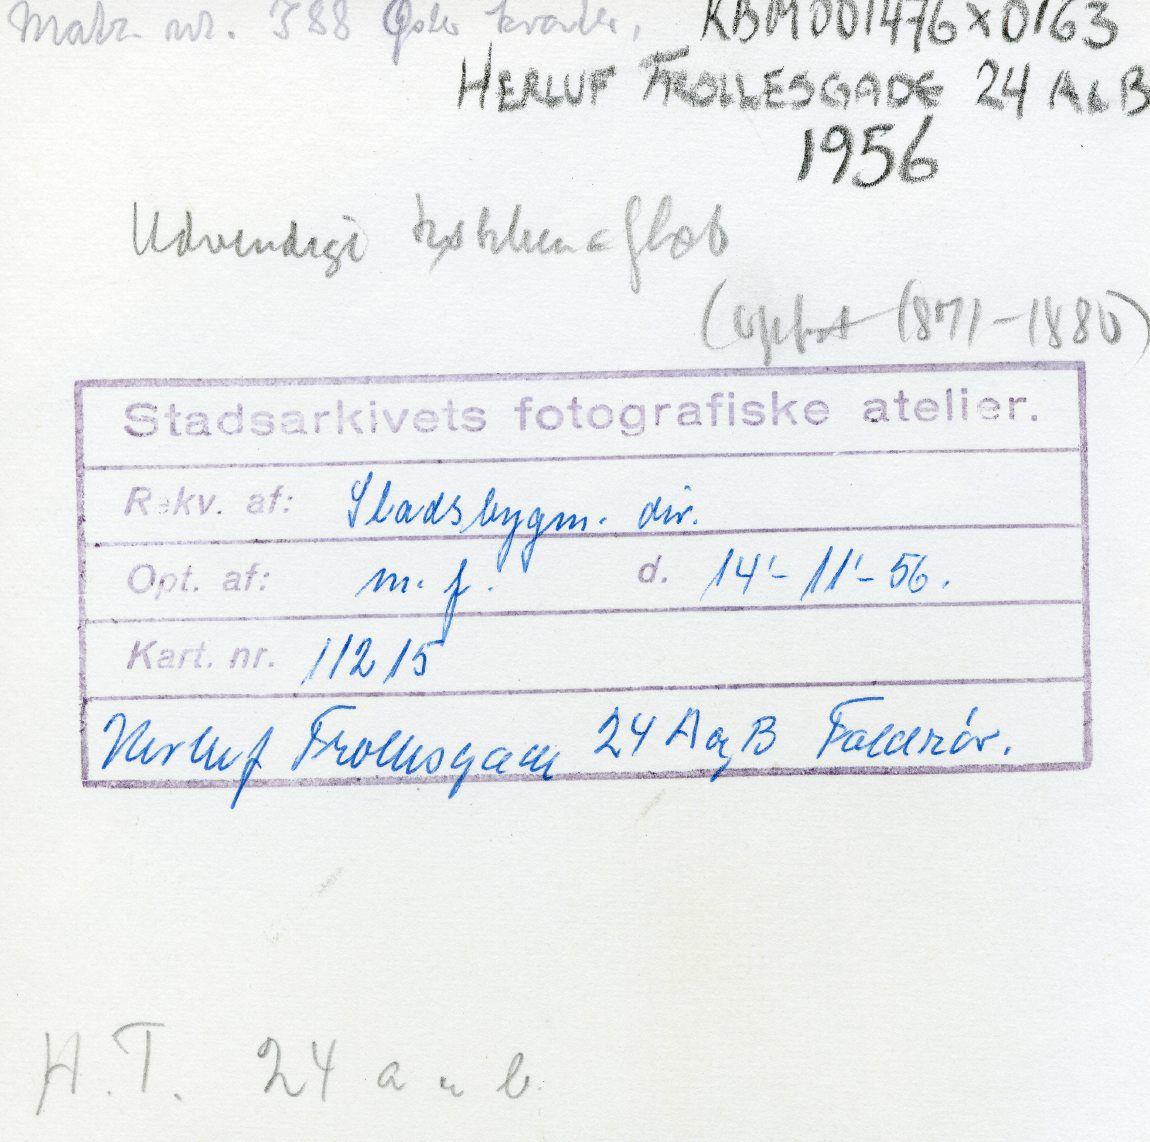 Matr. nr. 388 Øster kvarter,
KBM001476x0163
HERLUF TROLLESGADE 24 A & B
1956
Udvendigt køkkenafløb
(opført 1871-1880)
Stadsarkivets fotografiske atelier.
Rekv. af: Stadsbygm. dir.
Opt. af: m. f. d. 14'-11'-56.
Kart. nr. 11215
Herluf Trollesgade 24 A og B Faldrør.
H. T. 24 a & b